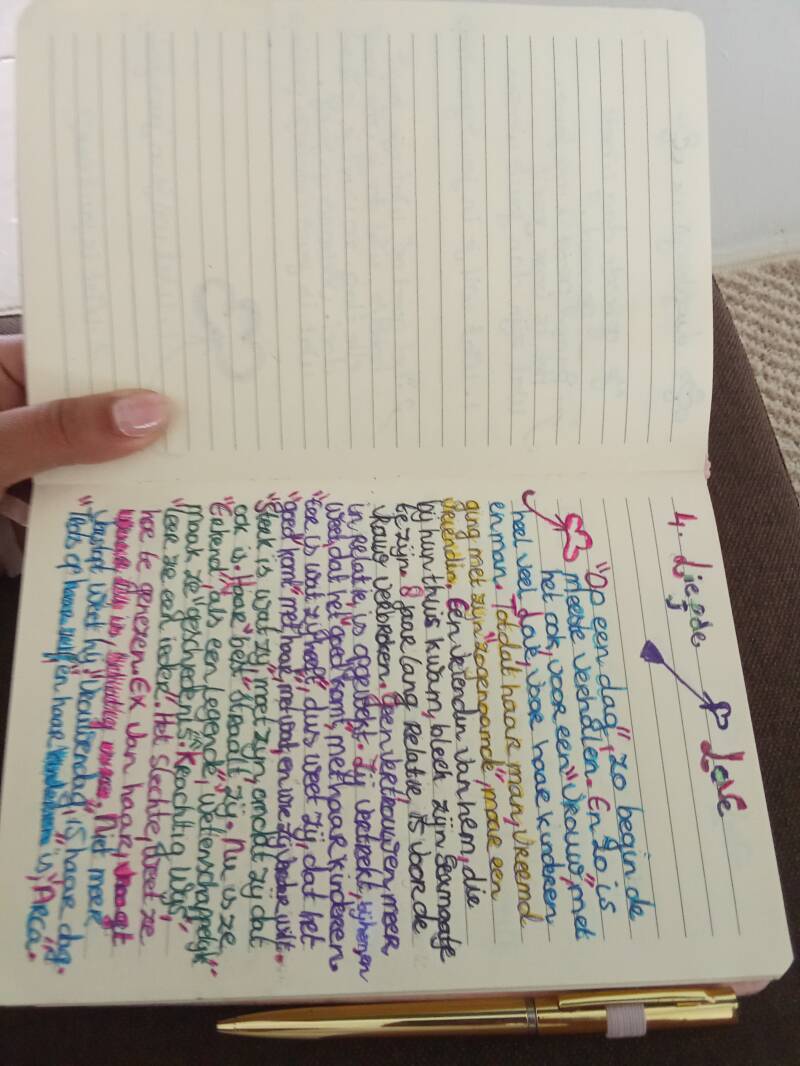 4. Liegde Love
"Op een dag" zo begin de
meeste verhalen. En zo is
het ook, voor een "vrouw", met
heel veel dak, voor haar kinderen
en man. Totdat haar man, vreemd
ging met zijn "zogenaamde", maar een
vriendin. Een vriendin van hem, die
bij hun thuis kwam, bleek zijn sexmaatje
te zijn. 8 jaar lang relatie is voor de
vrouw verbroken. Geen vertrouwen, meer
in relatie, is opgewekt. Zij vertrekt, bij hem, en
weet, dat het goed komt, met haar kinderen.
"Eer is wat zij heeft", dus weet zij, dat het
"goed komt" met haar, met wat, en wie zij verder wilt.
Sterk is wat zij, moet zijn, omdat zij dat
ook is. Haar "best" straalt zij. Nu is ze
"Erkend", als een legende, wetenschappelijk
maak ze "geschiedenis". Krachtig wijs,
"leer ze een ieder. Het slechte, weet ze
hoe te genezen. Ex van haar,
Niet meer
weet hij, "Vrouwendag, is haar dag.
"Iets op en haar is, "Arca".